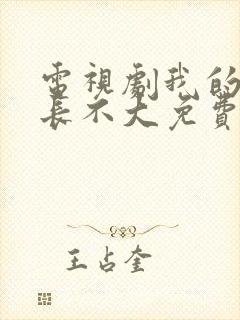 電視劇我的
長不大免費
王占奎